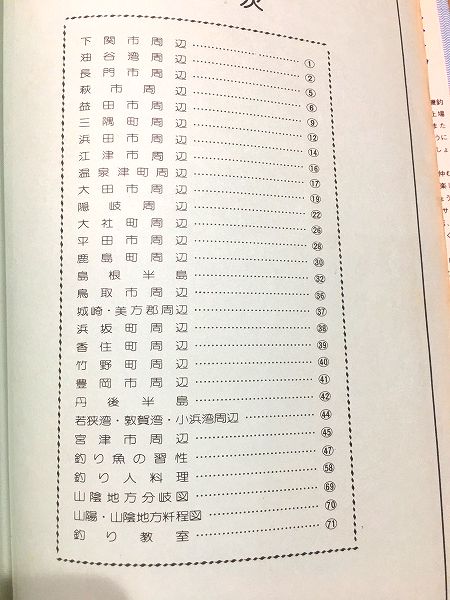 次
下関市周辺……①
油谷湾周辺……②
長門市周辺……⑤
萩市周辺……⑥
益田市周辺……⑨
三隅町周辺……⑫
浜田市周辺……⑭
江津市周辺……⑯
温泉津町周辺……⑰
大田市周辺……⑲
隠岐周辺……㉒
大社町周辺……㉖
平田市周辺……㉘
鹿島町周辺……㉚
島根半島……㉜
鳥取市周辺……㊱
城崎・美方郡周辺……㊲
浜坂町周辺……㊳
香住町周辺……㊴
竹野町周辺……㊵
豊岡市周辺……㊶
丹後半島……㊷
若狭湾・敦賀湾・小浜湾周辺……㊹
宮津市周辺……㊺
釣り魚の習性……㊼
釣り人料理……58
山陰地方分岐図……69
山陽・山陰地方粁程図……70
釣り教室……71